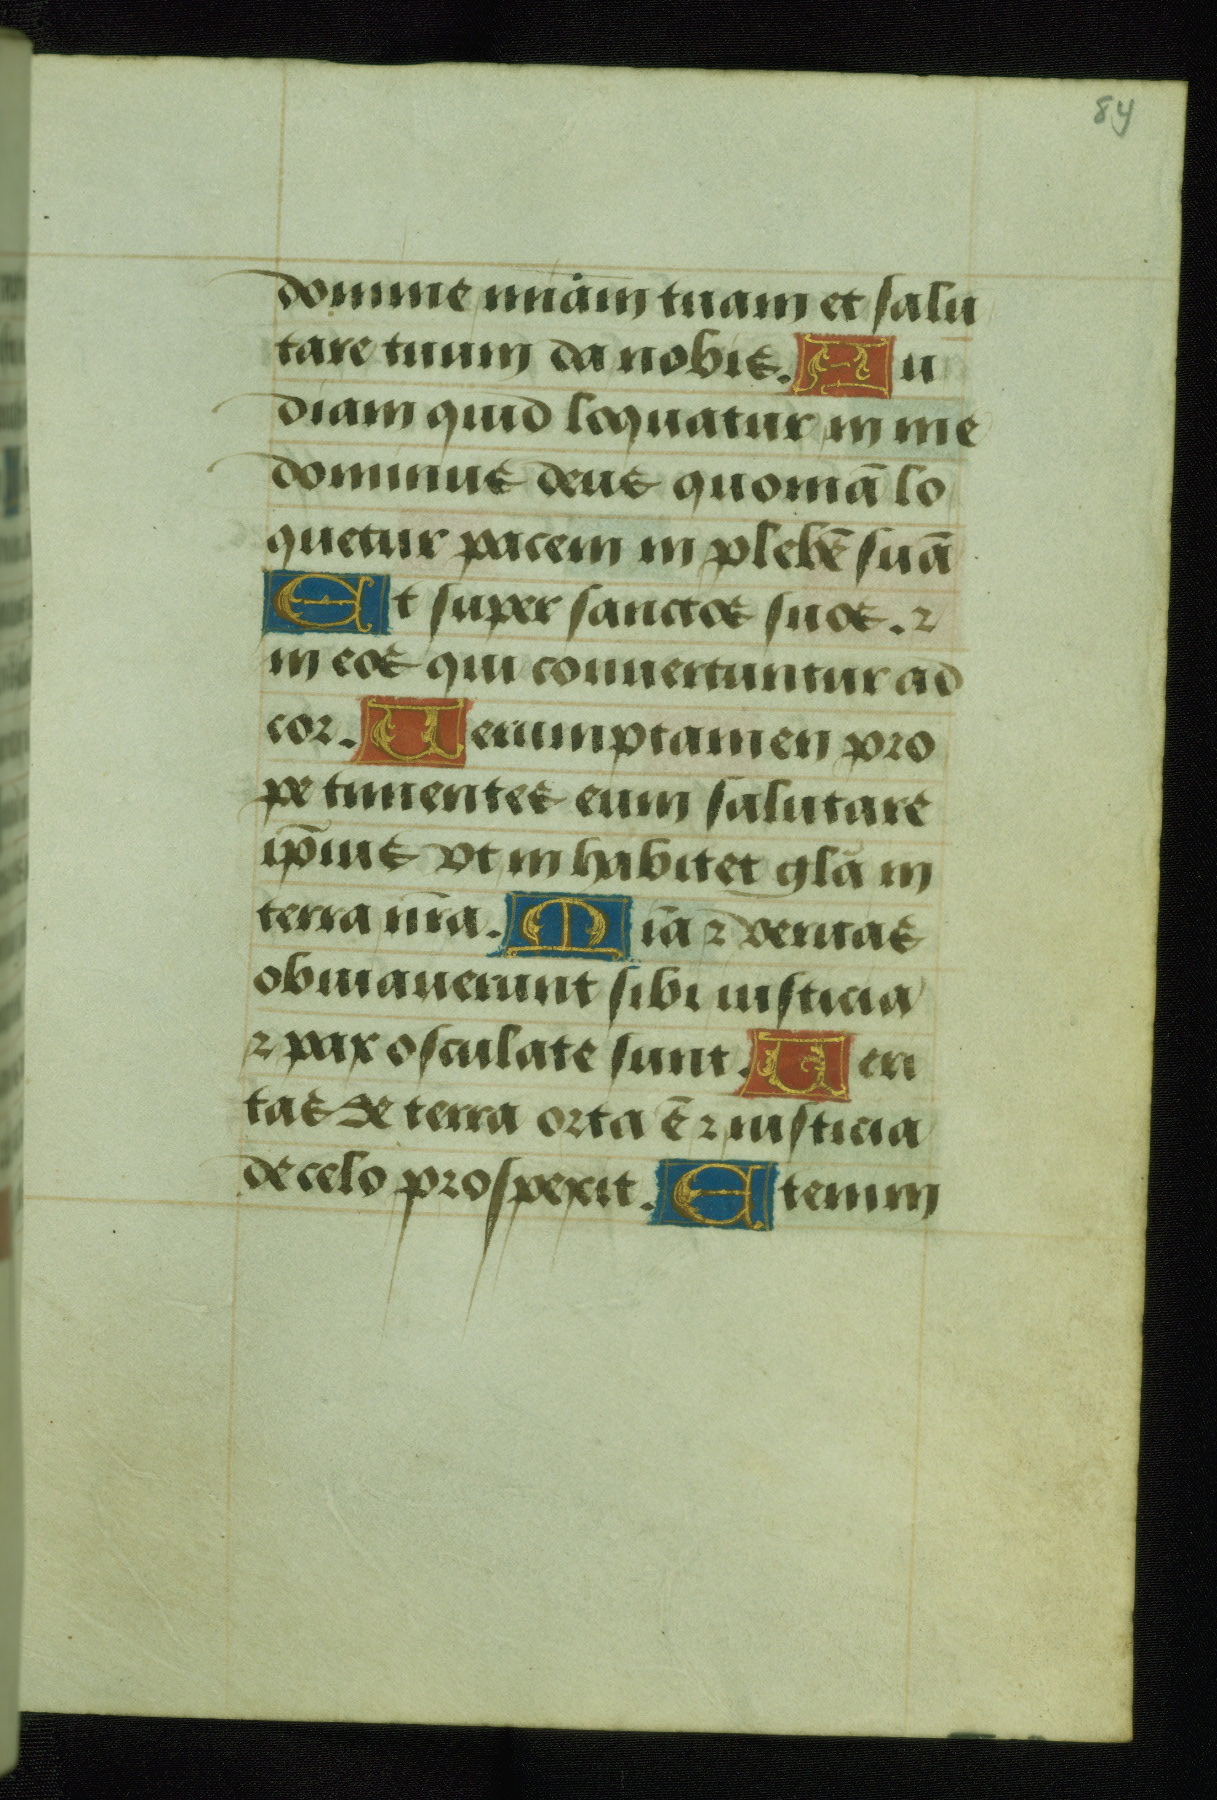 84
domine miãm tuam et salu
tare tuum da nobis. Au
diam quid loquatur in me
dominus deus quoniã lo
quetur pacem in plebẽ suã
Et super sanctos suos. ⁊
in eos qui conuertuntur ad
cor. Uerumptamen pro
pe timentes eum salutare
ip̃ius vt inhabitet glã in
terra nr̃a. Miã ⁊ veritas
obuiauerunt sibi iusticia
⁊ pax osculate sunt. Ueri
tas de terra orta ẽ ⁊ iusticia
de celo prospexit. Etenim